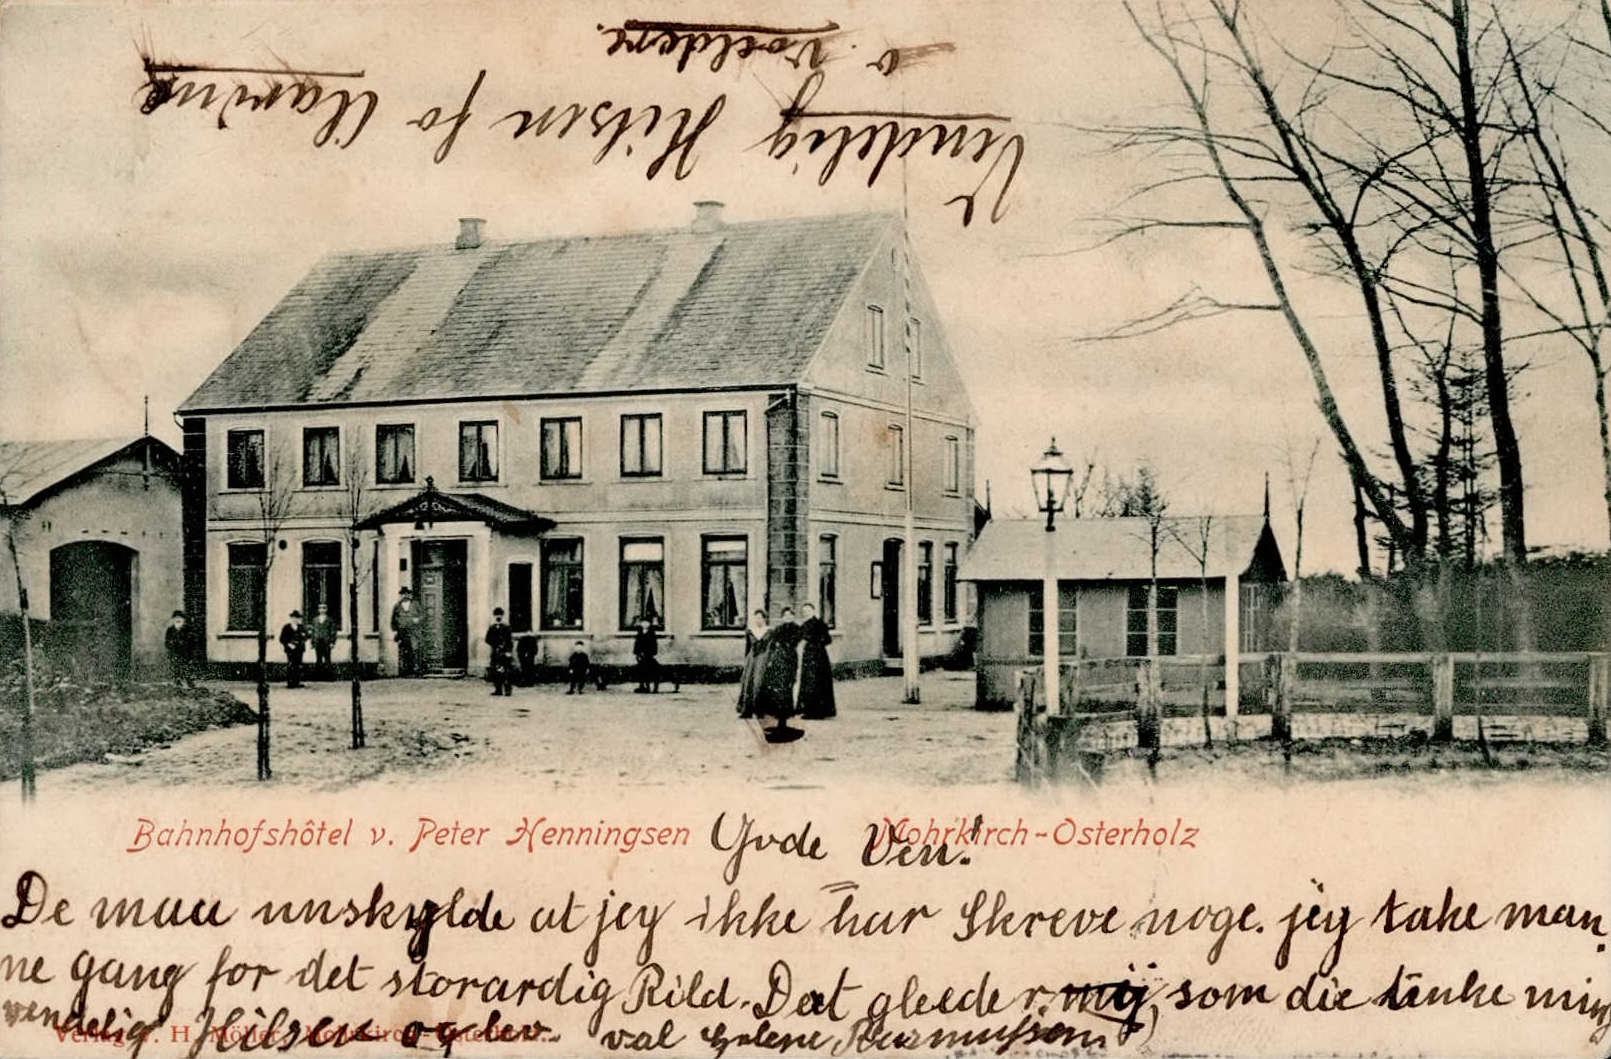 Vendelig Hilsen fo
v. Vældere.
Bahnhofshôtel v. Peter Henningsen
Mohrkirch-Osterholz
Gode Ven!
De maa unskylde at jey ikke har Skreve noge. jeg take man,
ne gang for det storardig Bild. Det gleeder mij, som die tänke min
vendelig Hilsen og lev val Helene Rasmussen
Verlag v. H. Möller, Mohrkirch-Osterholz.